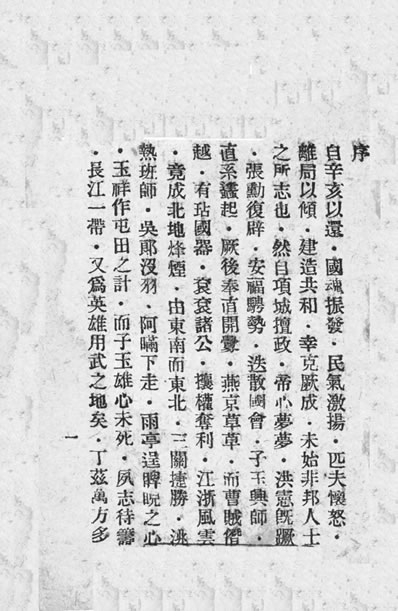 序
自辛亥以還·國魂振發·民氣激揚·匹夫懷怒·
離局以傾·建造共和·幸克厥成·未始非邦人士
之所志也·然自項城擅政·帝心夢夢·洪憲既蹶
·張勳復辟·安福騁勢·迭散國會·子玉興師·
直系蠭起·厥後奉直開釁·燕京草草·而曹賊僭
越·有玷國器·袞袞諸公·攘權奪利·江浙風雲
·竟成北地烽煙·由東南而東北·三關捷勝·洮
熱班師·吳郞沒羽·阿瞞下走·雨亭逞睥睨之心
·玉祥作屯田之計·而子玉雄心未死·夙志待籌
·長江一帶·又爲英雄用武之地矣·丁茲萬方多
一